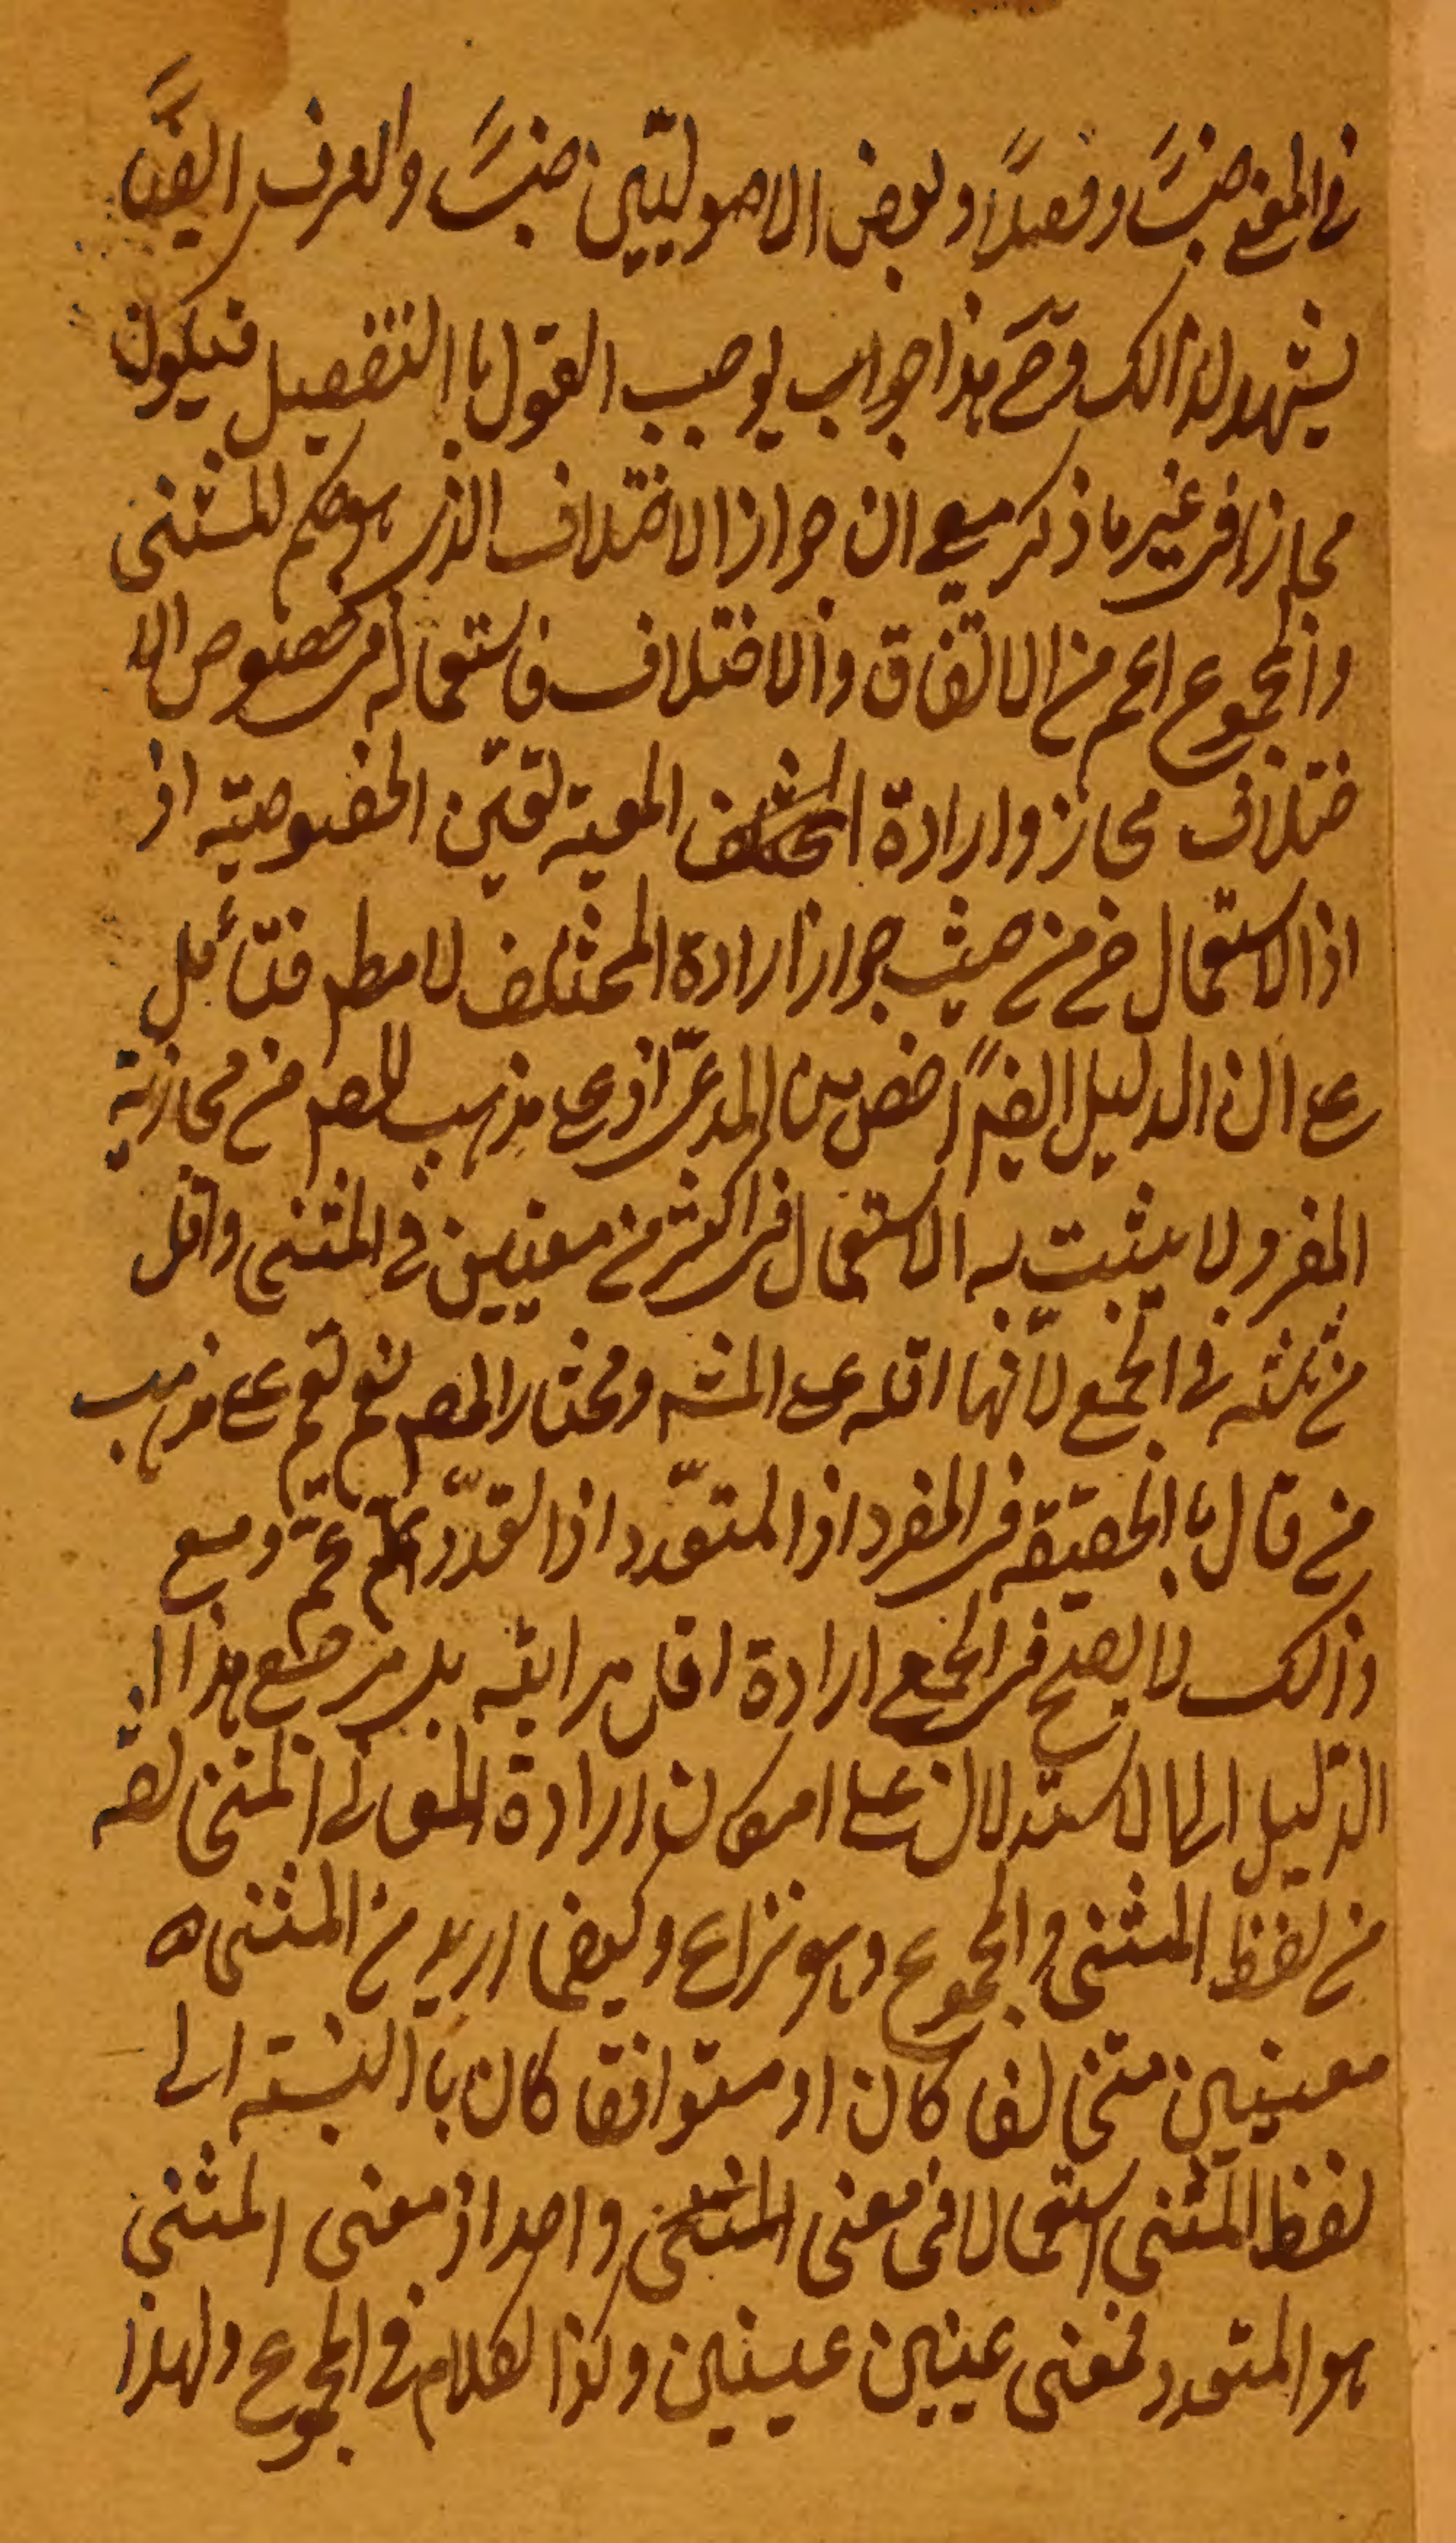 في المعنى جنسًا وفصلاً وبعض الاصوليّين جنسًا والعرف ايضًا
يشهد لذالك وح هذا جواب يوجب القول باالتفصيل فيكون
مجازا في غير ما ذكر مع ان جواز الاختلاف الذي هو حكم للمثنى
والمجموع اعم من الاتفاق والاختلاف فاستعماله في خصوص الا
ختلاف مجاز وارادة المختلف المعينة تعيّن الخصوصيّة اذ
اذ الاستعمال ح من حيث جواز ارادة المختلف لا مط فتأمل
على ان الدليل ايضًا اخص من المدعى اذ على مذهب المص من مجازية
المفرد لا يثبت به الاستعمال في اكثر من معنيين في المثنى واقل
من ثلثه في الجمع لانها اقله على المش ومختار المص نعم تعم على مذهب
من قال باالحقيقه في المفرد اذ المتعدد اذا تعدّد عم ومع
ذالك لا يصح في الجمع ارادة اقل مراتبه بل مرجع هذا
الدليل الى الاستدلال على امكان ارادة المعاني المتخالفه
من لفظ المثنى والمجموع وهو نزاع وكيفما اريد من المثنى
معنيين متخالفا كان او متوافقا كان باالنسبته الى
لفظ المثنى استعمالا في معنى المثنى واحد اذ معنى المثنى
هو المتعدد فمعنى عينين عينين وكذا الكلام في المجموع ولهذا